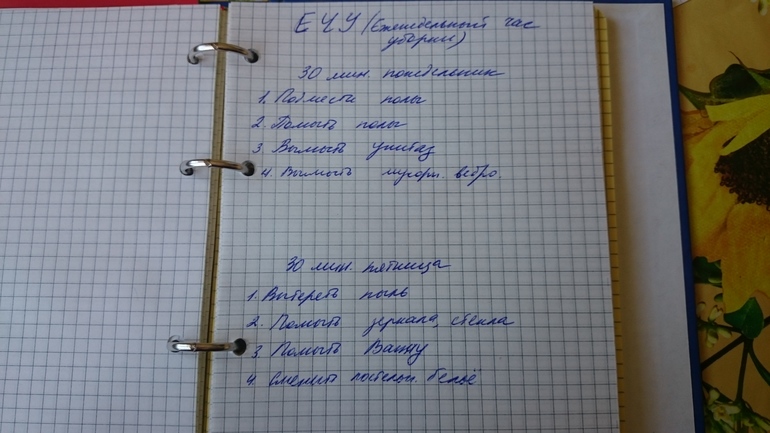 ЕЧУ (Еженедельный час
уборки)
30 мин. понедельник
1. Подмести полы
2. Помыть полы
3 Вымыть унитаз
4. Вымыть мусорн. ведро.
30 мин. пятница
1. Вытереть пыль
2. Помыть зеркала, стекла
3. Помыть Ванну
4. Сменить постельн. бельё